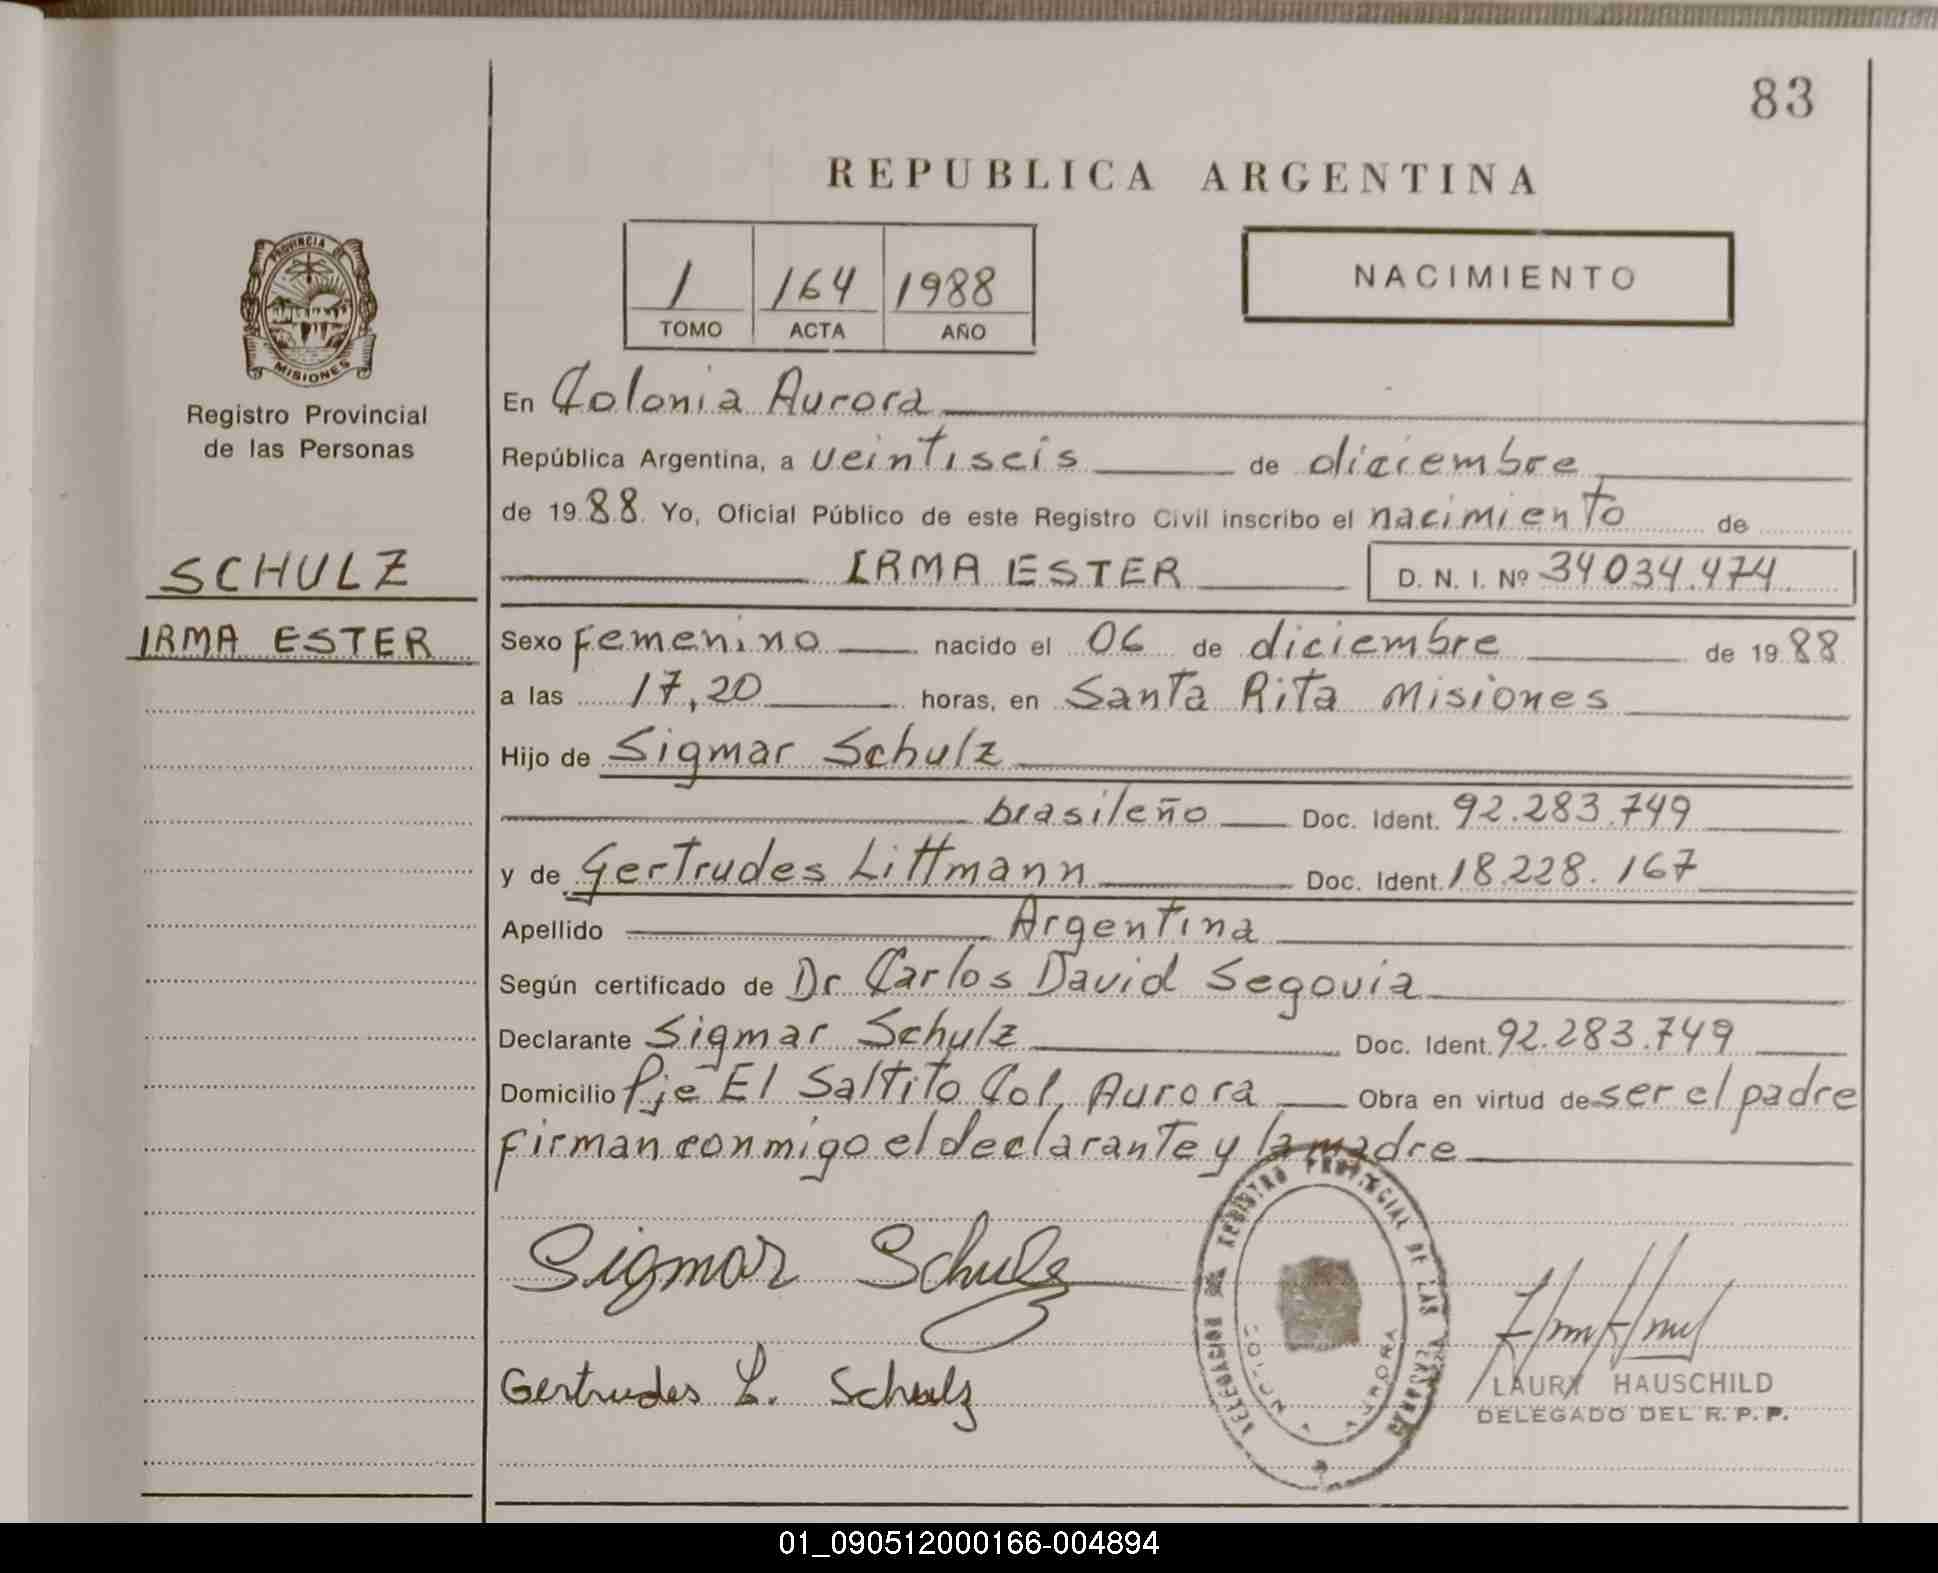 83
REPUBLICA ARGENTINA
1 164 1988
TOMO ACTA AÑO
NACIMIENTO
PROVINCIA DE
MISIONES
Registro Provincial
de las Personas
SCHULZ
IRMA ESTER
En Colonia Aurora
República Argentina, a veintiseis de diciembre
de 1988. Yo, Oficial Público de este Registro Civil inscribo el nacimiento de
IRMA ESTER D. N. I. Nº 34 034.474
Sexo Femenino nacido el 06 de diciembre de 1988
a las 17,20 horas, en Santa Rita Misiones
Hijo de Sigmar Schulz
brasileño Doc. Ident. 92.283.749
y de Gertrudes Littmann Doc. Ident. 18.228.167
Apellido Argentina
Según certificado de Dr Carlos David Segovia
Declarante Sigmar Schulz Doc. Ident. 92.283.749
Domicilio Pje El Saltito Col. Aurora Obra en virtud de ser el padre
firman conmigo el declarante y la madre
Sigmar Schulz
Gertrudes L. Schulz
REGISTRO PROVINCIAL DE LAS
COLONIA AURORA
LAURY HAUSCHILD
DELEGADO DEL R. P. P.
01_090512000166-004894